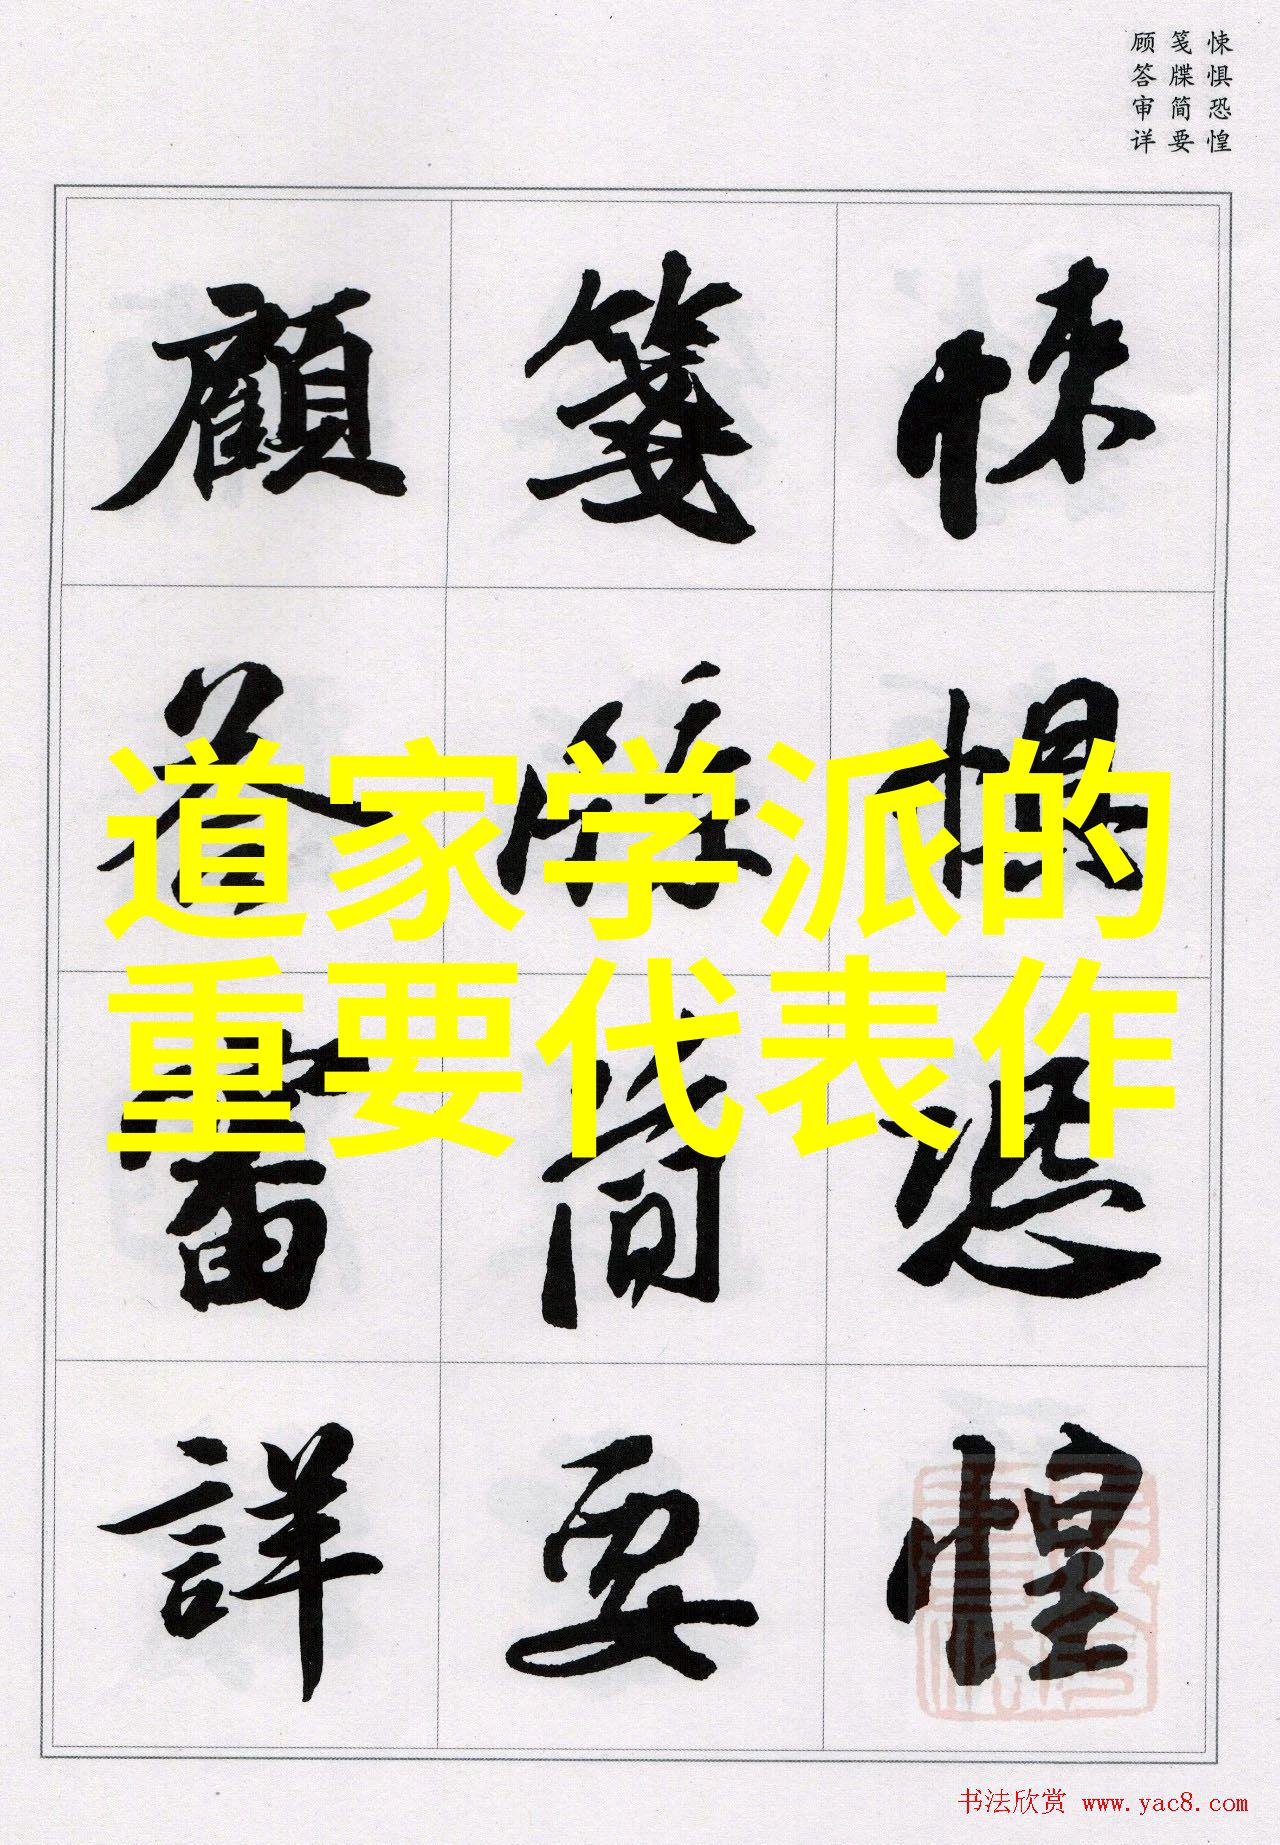 悚惧恐惶
笺牒简要
顾答审详
悚惧恐惶
箋牒简要
顧答審詳
道家学派的
重要代表作
书法欣赏 www.yac8.com